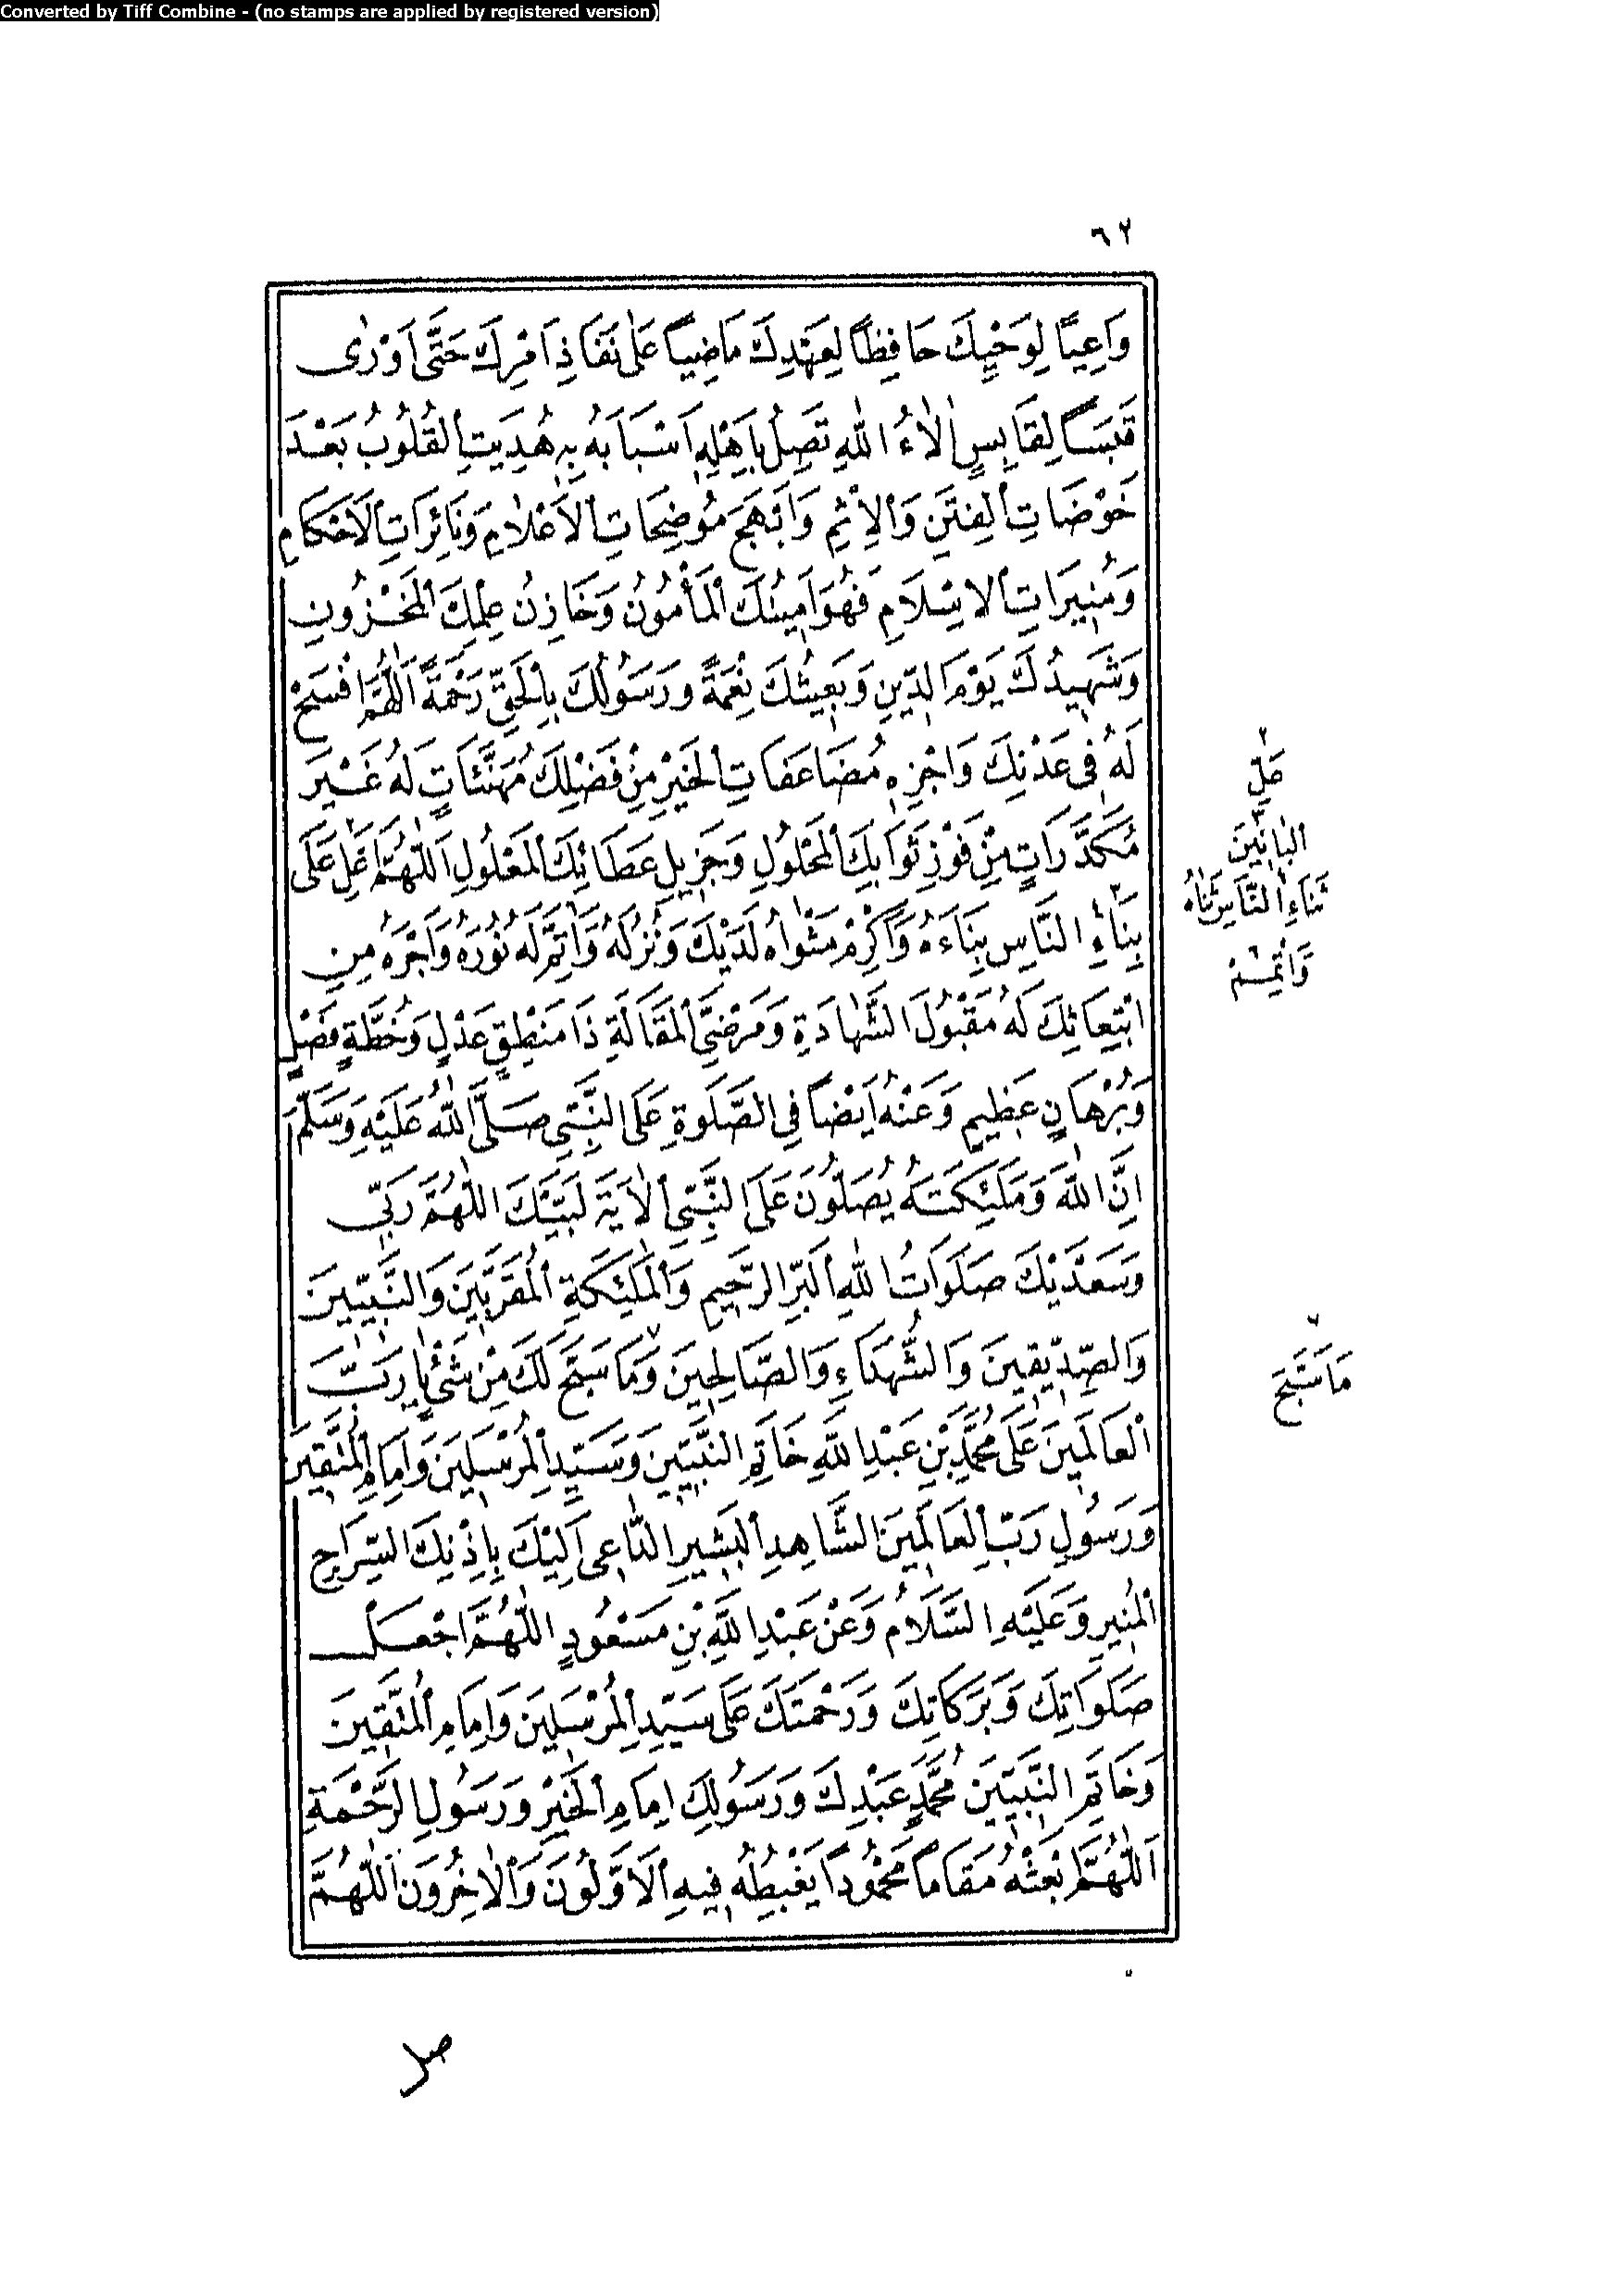 Converted by Tiff Combine - (no stamps are applied by registered version)
٦٢
وَاعِيًا لِوَحْيِكَ حَافِظًا لِعَهْدِكَ مَاضِيًا عَلٰى نَفَاذِ اَمْرِكَ حَتّٰى اَوْرٰى
قَبَسًا لِقَابِسٍ اٰلَاءُ اللّٰهِ تَصِلُ بِاَهْلِهِ اَسْبَابَهُ بِهِ هُدِيَتِ الْقُلُوبُ بَعْدَ
خَوْضَاتِ الْفِتَنِ وَالْاِثْمِ وَاَبْهَجَ مُوضِحَاتِ الْاَعْلَامِ وَنَائِرَاتِ الْاَحْكَامِ
وَمُنِيرَاتِ الْاِسْلَامِ فَهُوَ اَمِينُكَ الْمَأْمُونُ وَخَازِنُ عِلْمِكَ الْمَخْزُونِ
وَشَهِيدُكَ يَوْمَ الدِّينِ وَبَعِيثُكَ نِعْمَةً وَرَسُولُكَ بِالْحَقِّ رَحْمَةً اَللّٰهُمَّ افْسَحْ
لَهُ فِى عَدْنِكَ وَاجْزِهِ مُضَاعَفَاتِ الْخَيْرِ مِنْ فَضْلِكَ مُهَنَّئَاتٍ لَهُ غَيْرَ
مُكَدَّرَاتٍ مِنْ فَوْزِ ثَوَابِكَ الْمَحْلُولِ وَجَزِيلِ عَطَائِكَ الْمَعْلُولِ اَللّٰهُمَّ عَلِّ عَلَى
حَلِّ
الْبَانِينَ
بِنَاءِ النَّاسِ بِنَاءَهُ وَاَكْرِمْ مَثْوَاهُ لَدَيْكَ وَنُزُلَهُ وَاَتِمَّ لَهُ نُورَهُ وَاَجْرَهُ مِنِ
ثَنَاءِ النَّاسِ ثَنَاهُ
وَاَتْمِمْ
ابْتِعَاثِكَ لَهُ مَقْبُولَ الشَّهَادَةِ وَمَرْضِيَّ الْمَقَالَةِ ذَا مَنْطِقٍ عَدْلٍ وَخُطَّةٍ فَصْلٍ
وَبُرْهَانٍ عَظِيمٍ وَعَنْهُ اَيْضًا فِى الصَّلٰوةِ عَلَى النَّبِيِّ صَلَّى اللّٰهُ عَلَيْهِ وَسَلَّمَ
اِنَّ اللّٰهَ وَمَلٰئِكَتَهُ يُصَلُّونَ عَلَى النَّبِيِّ الْاٰيَةَ لَبَّيْكَ اللّٰهُمَّ رَبِّى
وَسَعْدَيْكَ صَلَوَاتُ اللّٰهِ الْبَرِّ الرَّحِيمِ وَالْمَلٰئِكَةِ الْمُقَرَّبِينَ وَالنَّبِيِّينَ
وَالصِّدِّيقِينَ وَالشُّهَدَاءِ وَالصَّالِحِينَ وَمَا سَبَّحَ لَكَ مِنْ شَىْءٍ يَا رَبَّ
مَا سَبَّحَ
الْعَالَمِينَ عَلَى مُحَمَّدِ بْنِ عَبْدِ اللّٰهِ خَاتَمِ النَّبِيِّينَ وَسَيِّدِ الْمُرْسَلِينَ وَاِمَامِ الْمُتَّقِينَ
وَرَسُولِ رَبِّ الْعَالَمِينَ الشَّاهِدِ الْبَشِيرِ الدَّاعِى اِلَيْكَ بِاِذْنِكَ السِّرَاجِ
الْمُنِيرِ وَعَلَيْهِ السَّلَامُ وَعَنْ عَبْدِ اللّٰهِ بْنِ مَسْعُودٍ اللّٰهُمَّ اجْعَلْ
صَلَوَاتِكَ وَبَرَكَاتِكَ وَرَحْمَتَكَ عَلَى سَيِّدِ الْمُرْسَلِينَ وَاِمَامِ الْمُتَّقِينَ
وَخَاتَمِ النَّبِيِّينَ مُحَمَّدٍ عَبْدِكَ وَرَسُولِكَ اِمَامِ الْخَيْرِ وَرَسُولِ الرَّحْمَةِ
اَللّٰهُمَّ ابْعَثْهُ مَقَامًا مَحْمُودًا يَغْبِطُهُ فِيهِ الْاَوَّلُونَ وَالْاٰخِرُونَ اَللّٰهُمَّ
صل